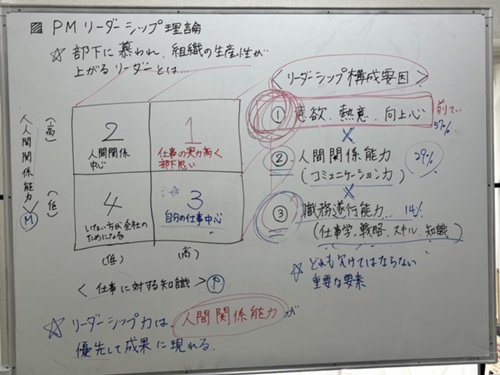 ▨ PMリーダーシップ理論
☆ 部下に慕われ、組織の生産性が
上がるリーダーとは…
〈リーダーシップ構成要因〉
① 意欲、熱意、向上心
57%
×
② 人間関係能力
(コミュニケーション力)
29%
×
③ 職務遂行能力
14%
(仕事学、戦略、スキル、知識)
☆ どれも欠けてはならない
重要な要素
(高)
人間関係能力
(低)
Ⓜ
2
人間関係
中心
1
仕事の実力高く
部下思い
4
いない方が会社の
ためになる
3
自分の仕事中心
(低)
(高)
〈仕事に対する知識〉 Ⓟ
☆ リーダーシップ力は、人間関係能力が
優先して成果に現れる。